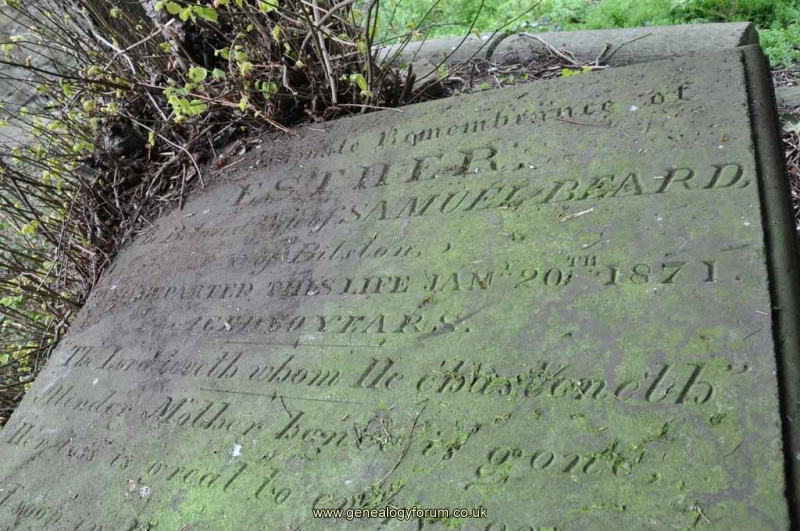 Remembrance of
ESTHER,
of SAMUEL BEARD,
of Bilston,
DEPARTED THIS LIFE JANY. 20TH 1871.
AGED 60 YEARS.
The Lord loveth whom He chasteneth"
tender Mother hence is gone,
loss is great to
www.genealogyforum.co.uk